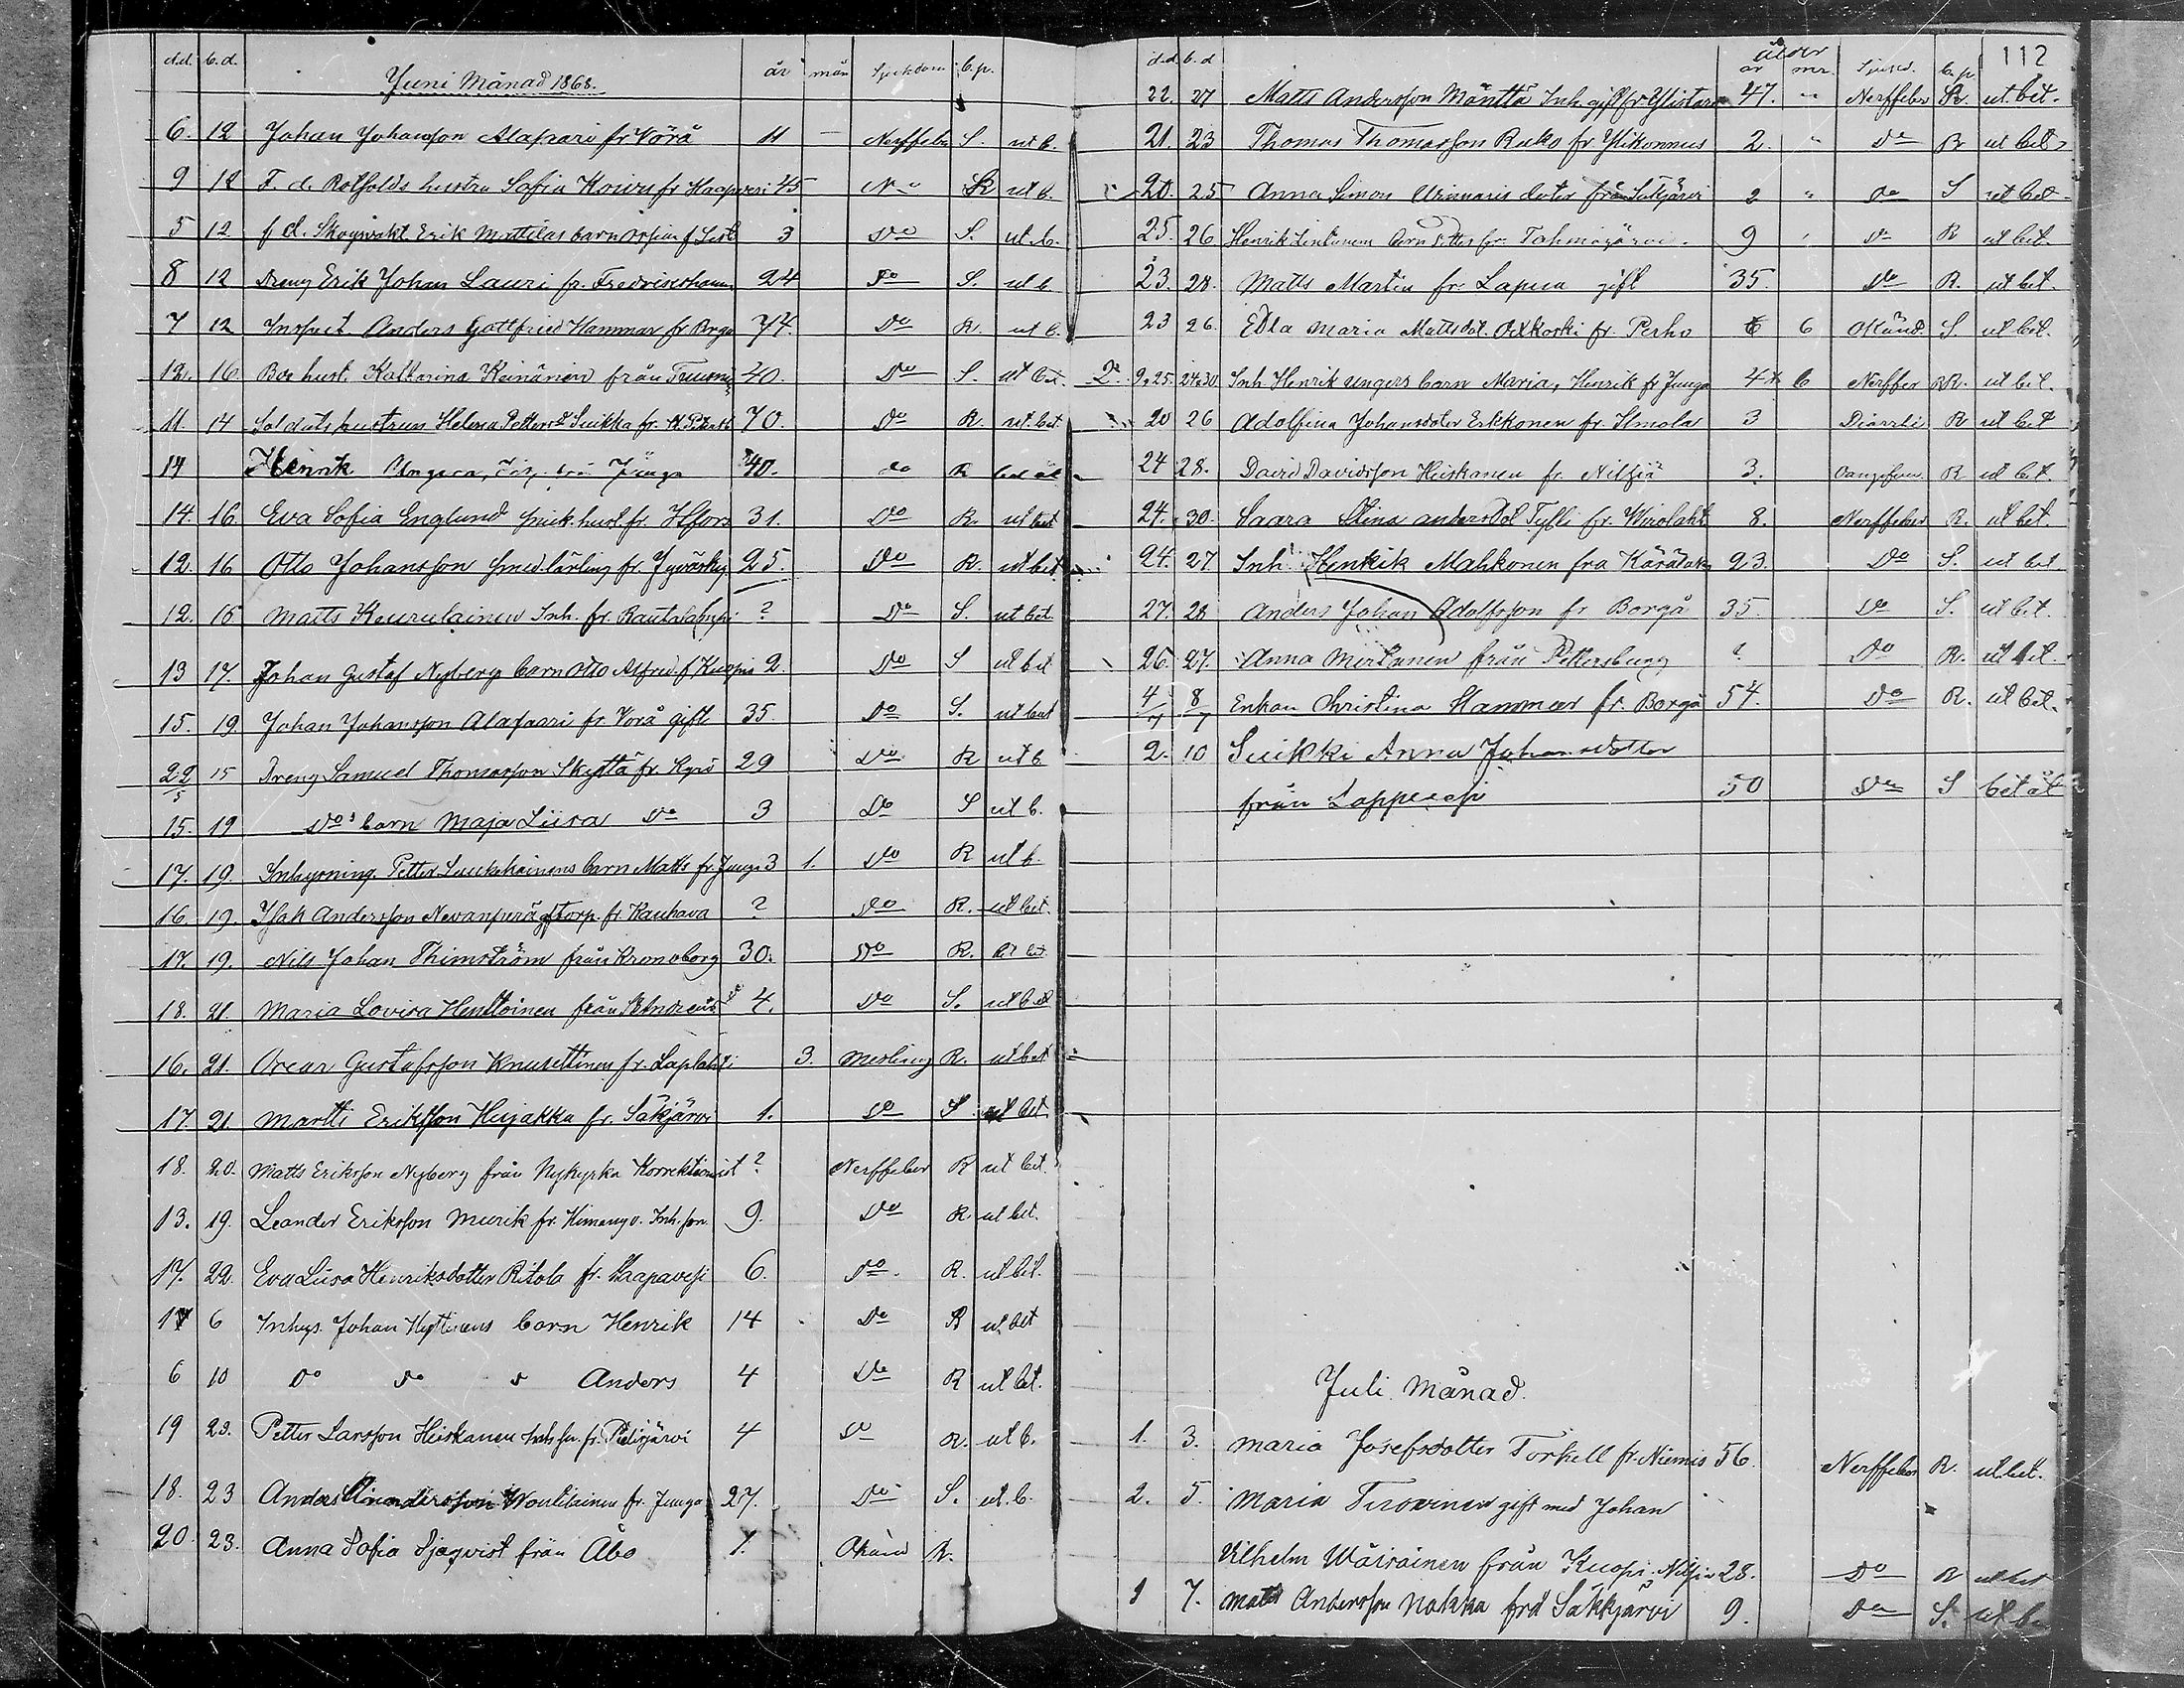 d.d. b.d. Juni Månad 1868. år mån Sjukdom b.p.
6. 12 Johan Johansson Alapari fr Vörå 11 — Nerffeber S. ut b.
9 12 F. d. Rotfolds hustru Sofia Koivu fr Haapvesi 45 Do R ut b.
5 12 f d. Skogsvakt Erik Mattilas barn f 3 Do S. ut. b.
8 12 Dreng Erik Johan Lauri fr. Fredrikshamn 24 Do S. ut b
7 12 Inspect. Anders Gottfried Hammar fr Brgå 74. Do R. ut b.
12. 16. hust. Kattarina Keinänen från 40. Do S. ut bet.
11. 14 Soldats hustrun Helena Petters Suikka fr. 70. Do R. ut. bet
14 Henrik Ungera, från Junga 40. do R
14. 16. Eva Sofia Englund hust fr. Hfors 31. Do R. ut bet
12. 16 Otto Johansson smedlärling fr. Jyväsky 25. Do R. ut bet
12. 15 Matts Keurulainen Inh. fr. Rautalampi ? Do S. ut bet.
13 17. Johan Gustaf Nyberg barn Otto Alfred f Kuopio 2. Do S ut bet
15. 19. Johan Johansson Alapaari fr Vörå gift 35. Do S. ut bet
22/5 15 Dreng Samuel Thomasson Skyttä fr. Kyrö 29 Do R ut b
15. 19 Do's barn Maja Liisa Do 3 Do S ut b.
17. 19. Inhysning Petter barn Matts fr Junga 3 1. Do R ut b.
16. 19. Isak Andersson Nevanperä torp. fr Kauhava ? Do R. ut bet.
17. 19. Nils Johan Thimström från Kronoborg 30. Do R. bet
18. 21. Maria Lovisa Henttoinen från St Andreæ 4. Do S. ut bet
16. 21. Oscar Gustafsson Knusettinen fr. Laplahti 3. Mesling R. ut bet
17. 21. Martti Eriksson Hujakka fr. Säkjärvi 1. Do S ut bet
18. 20. Matts Eriksson Nyberg från Nykyrka Korrektionist ? Nerffeber R ut bet.
13. 19. Leander Eriksson Murik fr. Himango. Inh. son 9. Do R. ut bet.
17. 22. Eva Liisa Henriksdotter Ritola fr. Haapavesi 6. Do R. ut bet.
17 6 Inhys. Johan Hyttinens barn Henrik 14 Do R ut bet
6 10 Do Do Anders 4 Do R ut bet.
19 23. Petter Larsson Heiskanen fr. Pielisjärvi 4 Do R. ut b.
18. 23 Anders Andersson Woutilainen fr. Junga 27. Do S. ut. b.
20. 23. Anna Sofia Sjöqvist från Åbo 1. Okänd R.
d.d b.d ålder år mr. Sjukd. b.p 112
22. 27 Matts Andersson Mänttä Inh. gift fr Ylistaro 47. " Nerffeber R. ut. bet.
21. 23 Thomas Thomasson Ruko fr. Ylikonnus 2. " Do R ut bet
20. 25 Anna Simons doter från Säkjärvi 2 " Do S ut bet
25. 26 Henrik Lintunen barn Petter fr. Tohmajärvi. 9 " Do R ut bet.
23. 28. Matts Martin fr. Lapua gift 35. Do R. ut bet.
23 26. Edla Maria Mattsdot. fr. Perho 6 Okänd. S. ut bet.
2. 9,25. 24,30 Inh Henrik Ungers barn Maria, Henrik fr Junga 4 6 Nerffer RR. ut bet.
20 26 Adolfina Johansdoter Erkkonen fr. Ilmola 3 Diarrhe R ut bet
24 28. David Davidsson Heiskanen fr. Nilsiä 3. R ut bet.
24. 30. Saara Stina Andersdot Tylli fr. Wirolahti 8. Nerffeber R. ut bet.
24. 27. Inh. Henrik Mahkonen fra 23. Do S. ut bet.
27. 28 Anders Johan Adolfsson fr Borgå 35. Do S. ut bet.
26. 27. Anna Mertanen från Pettersburg ? Do R. ut bet.
4/7 8/7 Enkan Christina Hammar fr. Borgå 54. Do R. ut bet.
2. 10 Suikki Anna Johansdotter
från Lappvesi 50 Do S bet ut
Juli Månad.
1. 3. Maria Josefsdotter Torkell fr. Niemis 56. Nerffeber R. ut bet.
2. 5. Maria Turovinen gift med Johan
Vilhelm Wäisäinen från Kuopi. Nilsiä 28. Do R ut bet
1 7. Matts Andersson Nakka frå Säkkjärvi 9. Do S. ut be